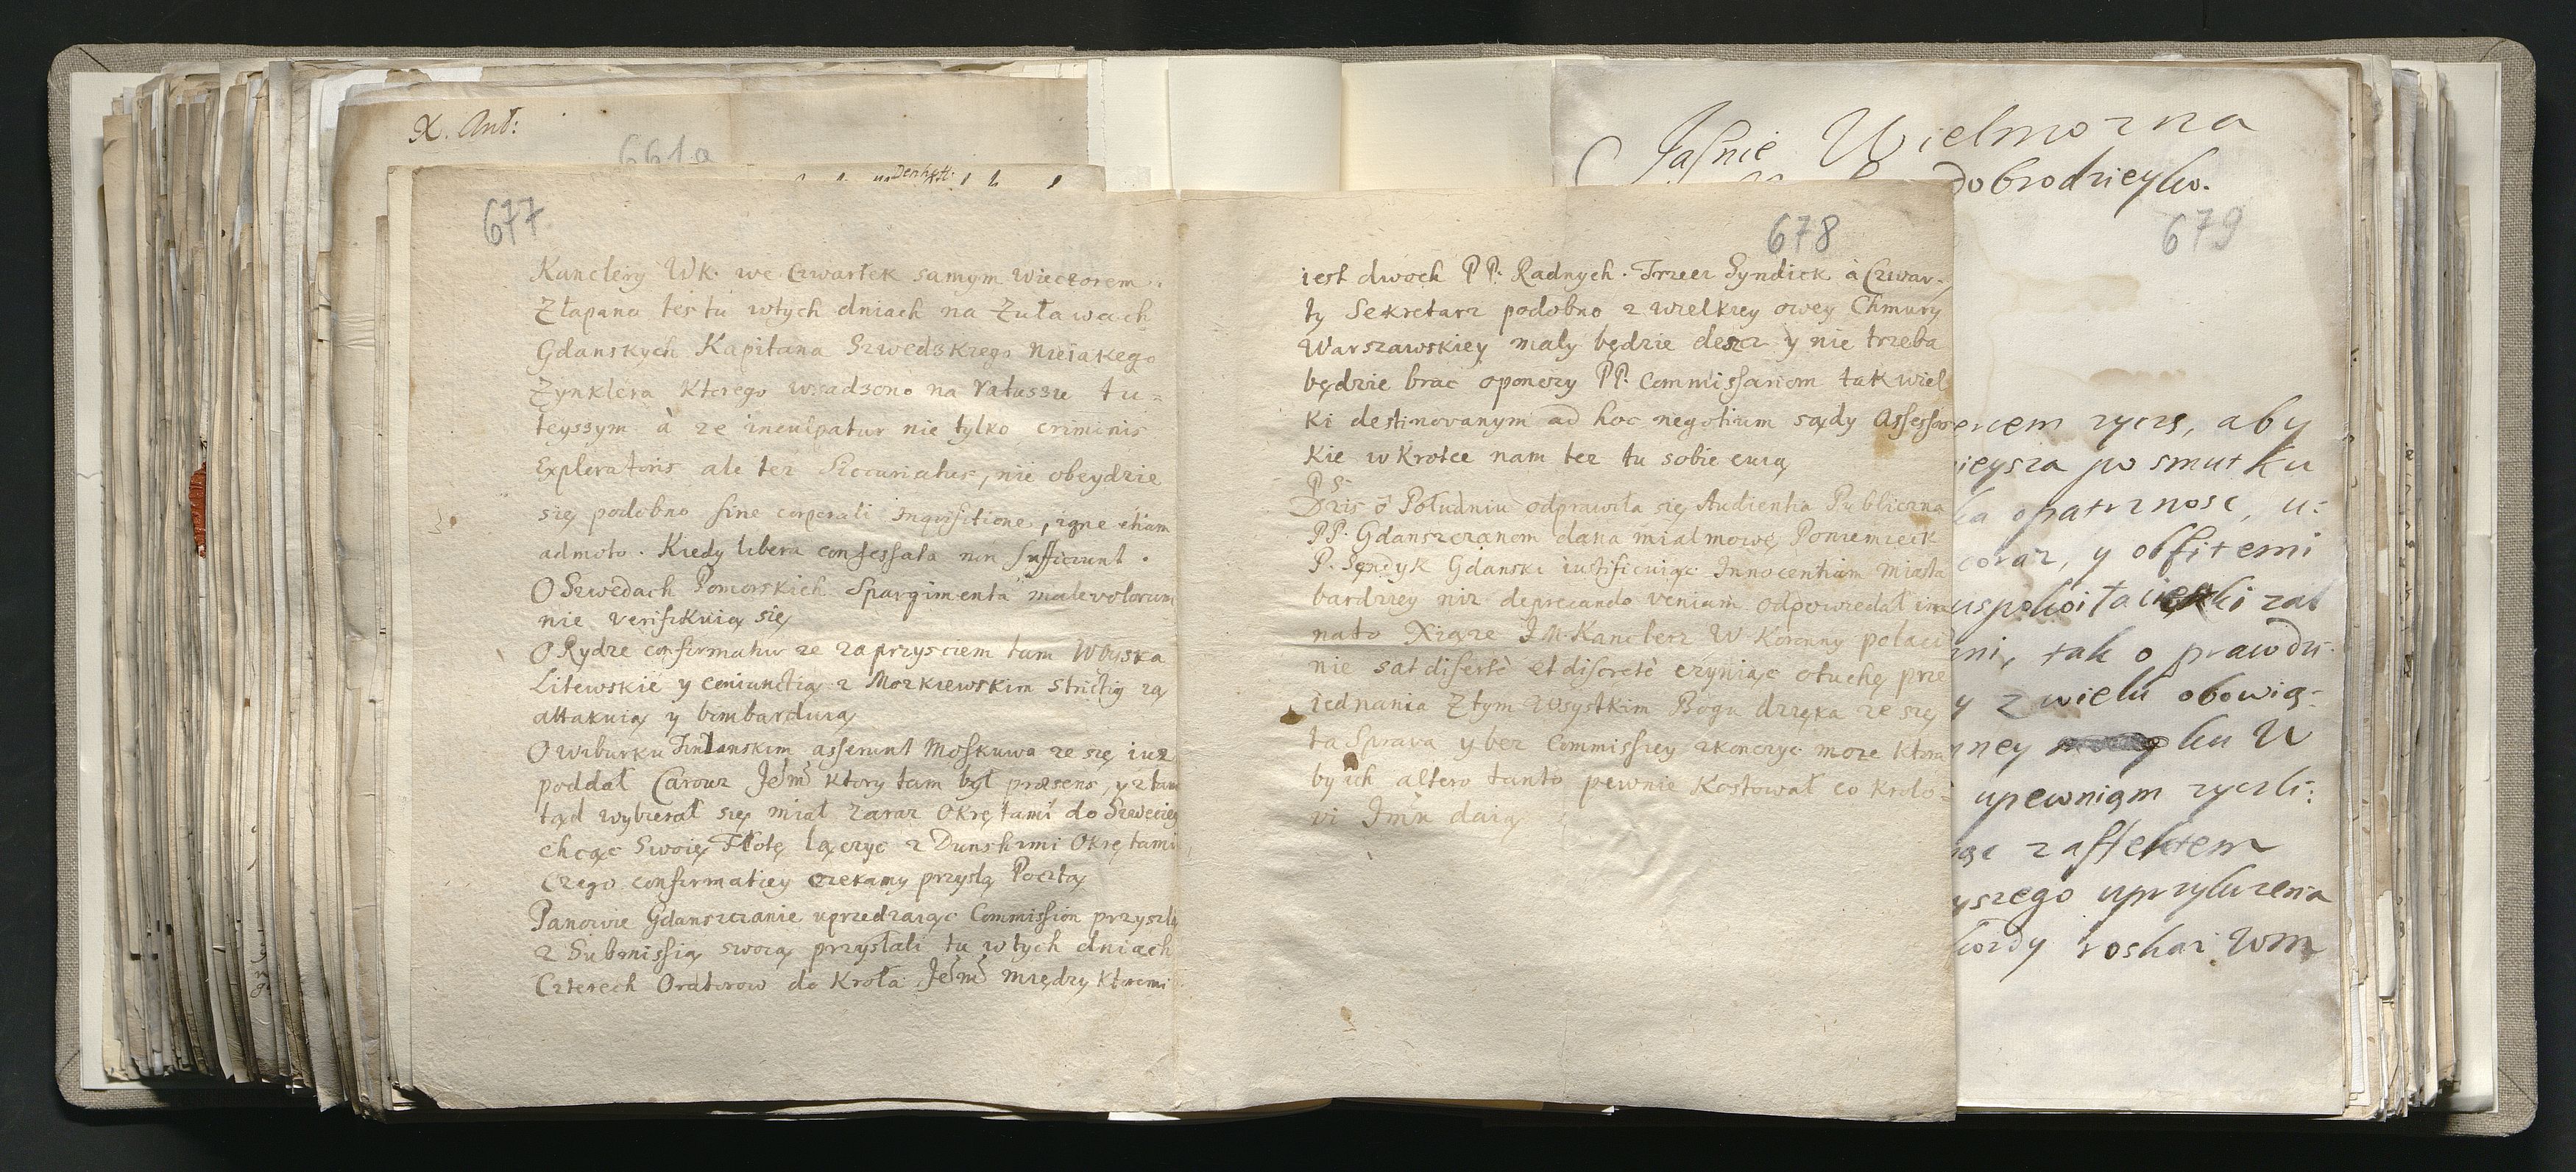 X. Ant:
661a
Denhoff:
677
Kanclery Wk. we Czwartek samym wieczorem.
Złapano tes tu wtych dniach na Żuławach
Gdanskych Kapitana Szwedzkiego nieiakego
Zynklera ktorego wsadzono na ratuszu tu=
teyszym à ze inculpatur nie tylko criminis
Exploratoris ale tez Siccariatus, nie obeydzie
się podobno sine corporali Inquisitione, igne etiam
admoto. Kiedy libera confessata non sufficiunt.
O Szwedach Pomorskich Spargimenta malevolorum
nie verifikuią się
O Rydze confirmatur ze zaprzysciem tam Woyska
Litewskie y coniunctią z Mozkiewskim strictig ią
attakuią y bombarduią
O Wiburku Finlanskim asserunt Moskuwa ze się iuz
poddał Carowi Jeśmś ktory tam był præsens, y ztam
tąd wybierał się miał zaraz Okrętami do Szwecieg
chcąc Swoię Flotę lączyc z Dunskimi Okrętami
Czego confirmatiey czekamy przyszłą Pocztą
Panowie Gdanszczanie uprzedzaiąc Commission przyszlą
z Submissią swoią przysłali tu wtych dniach
Czterech Oratorow do Krola Jeśmś między ktoremi
678
iest dwoch PP. Radnych. Trzeci Syndick à Czwar-
ty Sekretarz podobno z wielkiey owey Chmury
Warszawskiey maly będzie deszcz y nie trzeba
będzie brac oponczy PP. Commissariom tak wiel
ki destinovanym ad hoc negotium sądy Assessor
kie wkrotce nam tez tu sobie
PS.
Dzis ō Południu odprawiła się Audientia Publiczna
PP. Gdanszczanom dana miał mowę Poniemieck
P. Sęndyk Gdanski iustificuiąc Innocentiam miasta
bardziey niz deprecando veniam odpowiedał im
nato Xiąze JM. Kanclerz W. Koronny polaci
nie sat disertè et discretè czyniąc otuchę prze
iednania Ztym wszystkim Bogu dzięka ze się
ta Sprava y bez Commissiey zkonczyc moze ktora
by ich altero tanto pewnie kostował co krolo=
vi Jmśu daią
Jasnie Wielmozna
Dobrodzieyko.
679
aby
po smutku
opatrznosc, u:
coraz, y obfitemi
zal
tak o prawdzi-
y z wielu obowią-
ku W
upewniam zyczli:
z affektem
uprzykrzenia
roskaz Wm